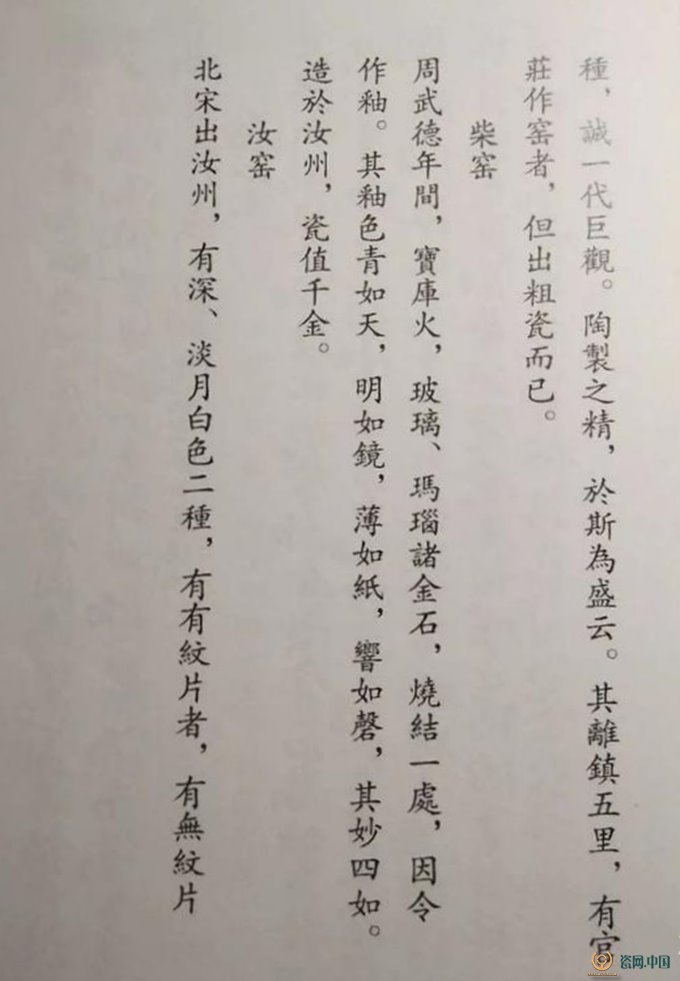 種，誠一代巨觀。陶製之精，於斯為盛云。其離鎮五里，有官
莊作窑者，但出粗瓷而已。
柴窑
周武德年間，寶庫火，玻璃、瑪瑙諸金石，燒結一處，因令
作釉。其釉色青如天，明如鏡，薄如紙，響如磬，其妙四如。
造於汝州，瓷值千金。
汝窑
北宋出汝州，有深、淡月白色二種，有有紋片者，有無紋片
瓷网.中国